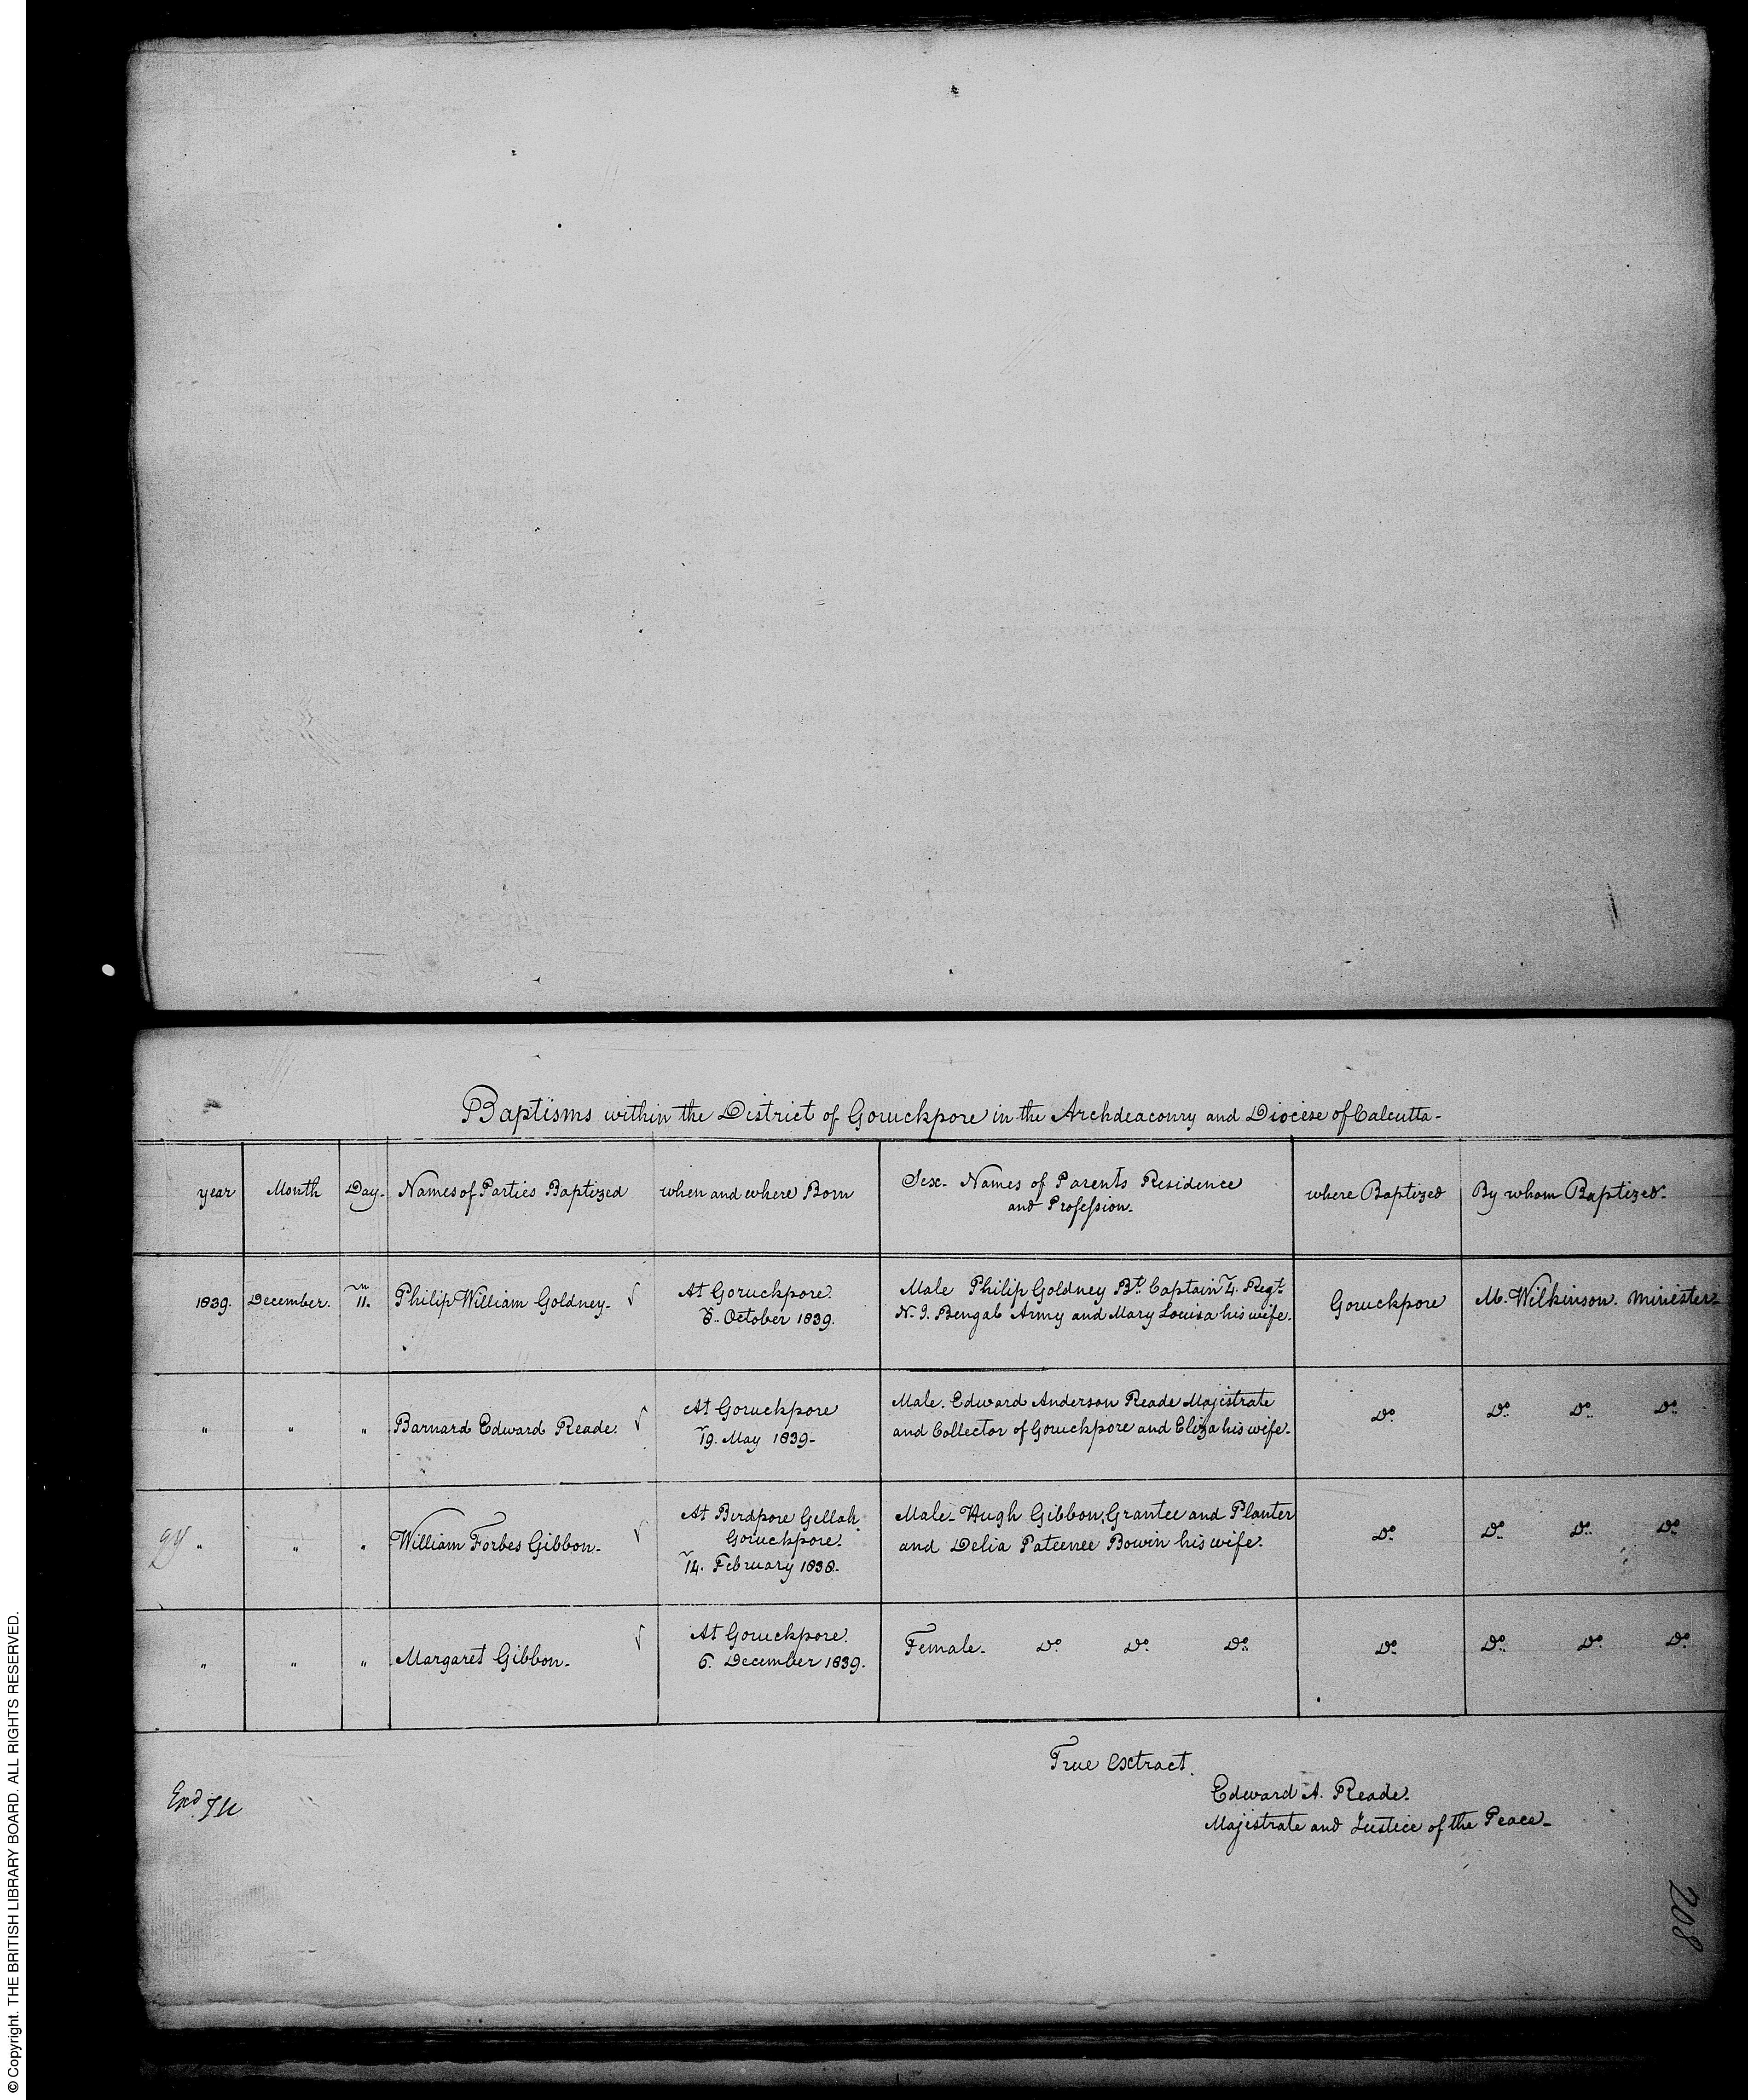 Baptisms within the District of Goruckpore in the Archdeaconry and Diocese of Calcutta-
year Month Day- Names of Parties Baptized when and where Born Sex- Names of Parents Residence and Profession- where Baptized By whom Baptized-
1839. December. 11. Philip William Goldney- √ At Goruckpore. Male Philip Goldney Bt. Captain 4. Regt.
8. October 1839. N. I. Bengal Army and Mary Louisa his wife. Goruckpore M. Wilkinson. Minister-
" " " Barnard Edward Reade. √ At Goruckpore Male. Edward Anderson Reade Majistrate
19. May 1839- and Collector of Goruckpore and Eliza his wife- Do. Do. Do. Do.
" " " William Forbes Gibbon- √ At Birdpore Gillah Male- Hugh Gibbon, Grantee and Planter
Goruckpore. and Delia Pateenee Bowin his wife. Do. Do. Do. Do.
14. February 1838.
" " " Margaret Gibbon- √ At Goruckpore. Female- Do. Do. Do. Do. Do. Do. Do.
6. December 1839.
True Extract.
Edward A. Reade.
Majistrate and Justice of the Peace-
Exd.
208
© Copyright. THE BRITISH LIBRARY BOARD. ALL RIGHTS RESERVED.